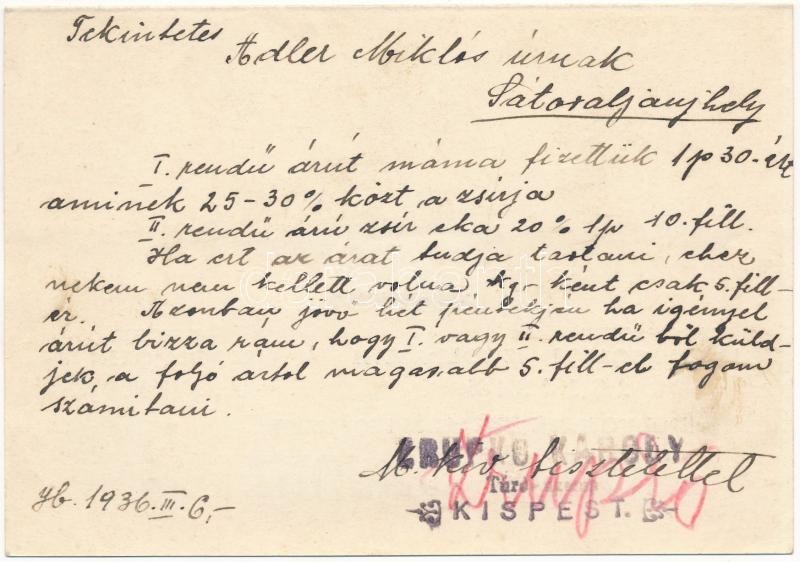 Tekintetes
Adler Miklós úrnak
Sátoraljaujhely
I. rendű árút máma fizettük 1p 30-ért
aminek 25-30% közt a zsirja
II. rendű árú zsir cka 20% 1p 10.fill.
Ha ezt az árat tudja tartani, ehez
nekem nem kellett volna kg-ként csak 5.fill-
ér. Azonban jövő hét péntekjén ha igényel
árút bizza rám, hogy I. vagy II. rendű ból küld-
jek, a folyó ártol magasabb 5.fill-el fogom
számitani.
KÁROLY
M. kiv tisztelettel
KISPEST.
1936.III.6,-